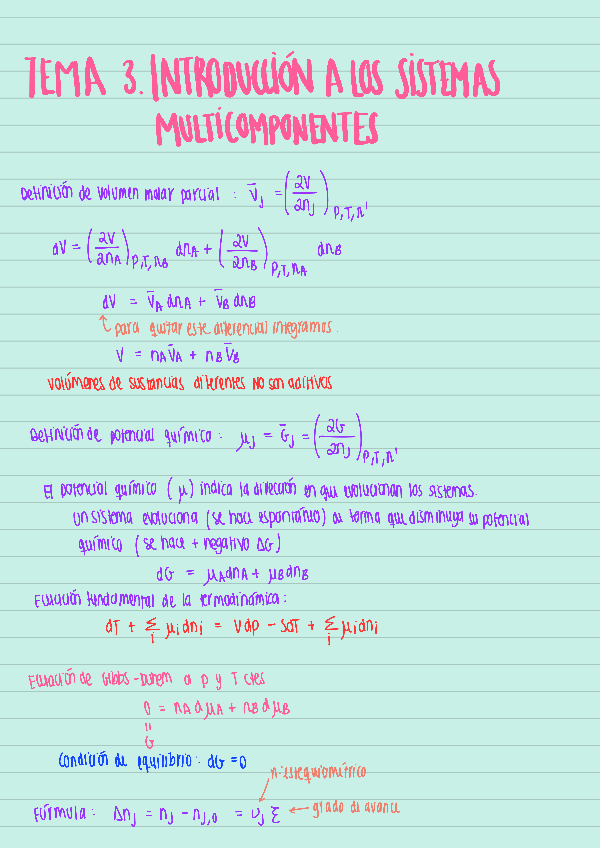 TEMA 3. INTRODUCCIÓN A LOS SISTEMAS
MULTICOMPONENTES
Definición de volumen molar parcial : V̄j = (∂V/∂nj)P,T,n'
dV = (∂V/∂nA)P,T,nB dnA + (∂V/∂nB)P,T,nA dnB
dV = V̄A dnA + V̄B dnB
para quitar este diferencial integramos.
V = nAV̄A + nBV̄B
Volúmenes de sustancias diferentes NO son aditivos
Definición de potencial químico : μj = Ḡj = (∂G/∂nj)P,T,n'
El potencial químico (μ) indica la dirección en que evolucionan los sistemas.
Un sistema evoluciona (se hace espontáneo) de forma que disminuya su potencial
químico (se hace + negativo ΔG)
dG = μAdnA + μBdnB
Ecuación fundamental de la termodinámica :
dT + Σi μidni = Vdp - SdT + Σi μidni
Ecuación de Gibbs-Duhem a p y T ctes
0 = nA dμA + nB dμB
=
G
Condición de equilibrio : dG = 0
n: estequiométrico
Fórmula : Δnj = nj - nj,0 = υj Σ ← grado de avance